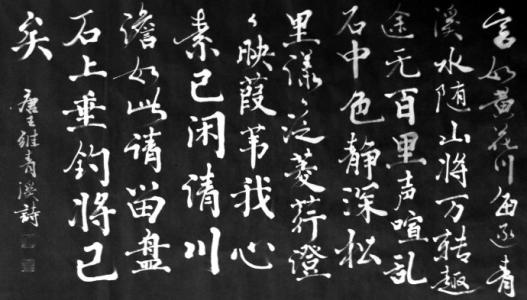 言如黄花川每逐青
溪水随山将万转趣
途无百里声喧乱
石中色静深松
里漾〻泛菱荇澄
〻映葭苇我心
素已闲清川
澹如此请留盘
石上垂钓将已
矣
唐王維青溪詩